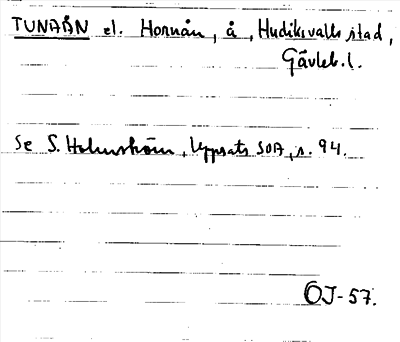 TUNAÅN el. Hornån, å, Hudiksvalls stad,
Gävleb. l.
Se S. Holmström, Uppsats SOÄ, s. 94.
ÖJ-57.